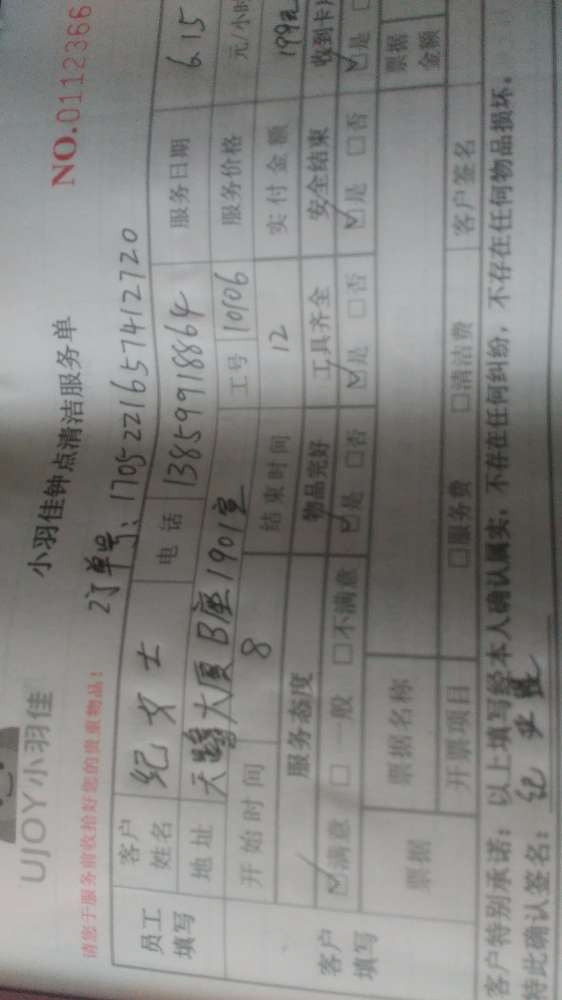 UJOY小羽佳
小羽佳钟点清洁服务单
NO.0112366
请您于服务前收拾好您的贵重物品!
订单号:1705221657412720
员工填写
客户姓名 纪女士 电话 13859918864 服务日期 6.15
地址 天鹭大厦B座1901室 工号 10106 服务价格 元/小时
客户填写
开始时间 8 结束时间 12 实付金额 199元
服务态度 物品完好 工具齐全 安全结束 收到卡
☑满意 □一般 □不满意 ☑是 □否 ☑是 □否 ☑是 □否 ☑是
票据 票据名称 票据金额
开票项目 □服务费 □清洁费 客户签名
客户特别承诺:以上填写经本人确认属实,不存在任何纠纷,不存在任何物品损坏。
特此确认签名:纪